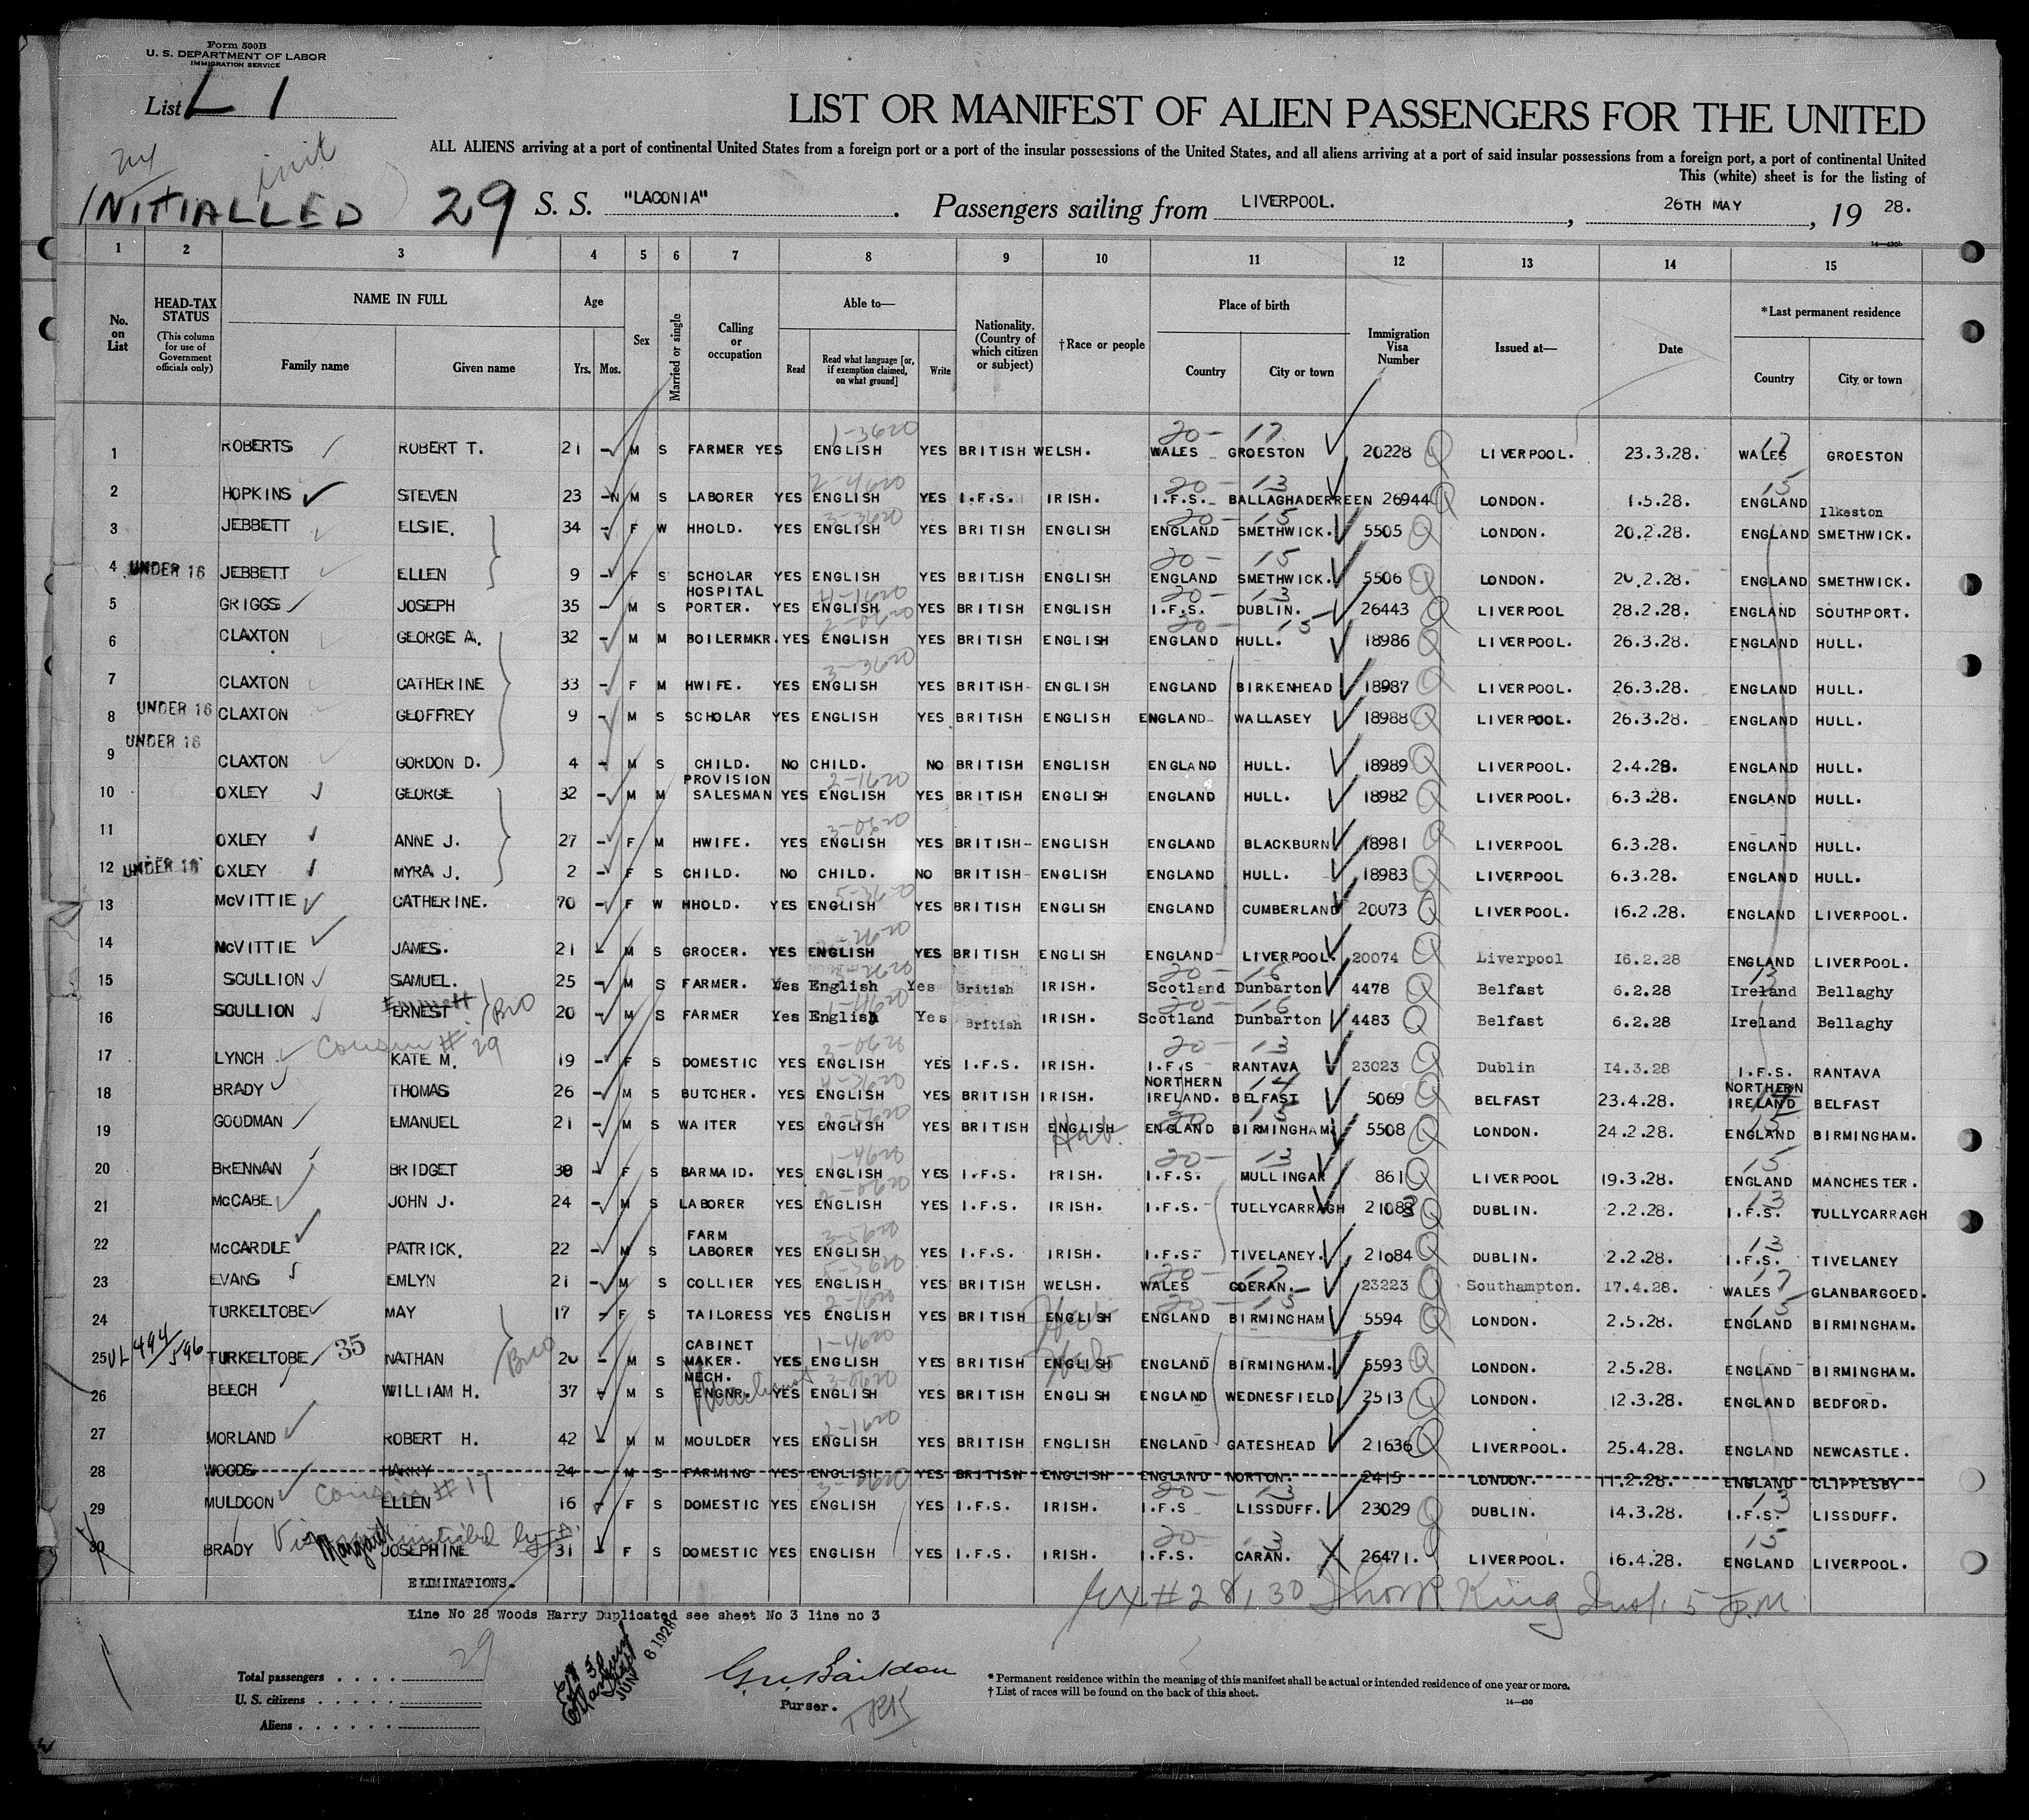 Form 500B
U. S. DEPARTMENT OF LABOR
IMMIGRATION SERVICE
List L 1
LIST OR MANIFEST OF ALIEN PASSENGERS FOR THE UNITED
ALL ALIENS arriving at a port of continental United States from a foreign port or a port of the insular possessions of the United States, and all aliens arriving at a port of said insular possessions from a foreign port, a port of continental United
This (white) sheet is for the listing of
init
INITIALLED 29 S. S. "LACONIA" Passengers sailing from LIVERPOOL. , 26TH MAY , 19 28.
14—430b
1 2 3 4 5 6 7 8 9 10 11 12 13 14 15
No. on List HEAD-TAX STATUS (This column for use of Government officials only) NAME IN FULL Family name Given name Age Yrs. Mos. Sex Married or single Calling or occupation Able to— Read Read what language [or, if exemption claimed, on what ground] Write Nationality. (Country of which citizen or subject) †Race or people Place of birth Country City or town Immigration Visa Number Issued at— Date *Last permanent residence Country City or town
1 ROBERTS ROBERT T. 21 - M S FARMER YES ENGLISH YES BRITISH WELSH. WALES GROESTON 20228 LIVERPOOL. 23.3.28. WALES GROESTON
2 HOPKINS STEVEN 23 - M S LABORER YES ENGLISH YES I.F.S. IRISH. I.F.S. BALLAGHADERREEN 26944 LONDON. 1.5.28. ENGLAND Ilkeston
3 JEBBETT ELSIE. 34 - F W HHOLD. YES ENGLISH YES BRITISH ENGLISH ENGLAND SMETHWICK. 5505 LONDON. 20.2.28. ENGLAND SMETHWICK.
4 UNDER 16 JEBBETT ELLEN 9 - F S SCHOLAR YES ENGLISH YES BRITISH ENGLISH ENGLAND SMETHWICK. 5506 LONDON. 20.2.28. ENGLAND SMETHWICK.
5 GRIGGS JOSEPH 35 - M S HOSPITAL PORTER. YES ENGLISH YES BRITISH ENGLISH I.F.S. DUBLIN. 26443 LIVERPOOL 28.2.28. ENGLAND SOUTHPORT.
6 CLAXTON GEORGE A. 32 - M M BOILERMKR. YES ENGLISH YES BRITISH ENGLISH ENGLAND HULL. 18986 LIVERPOOL. 26.3.28. ENGLAND HULL.
7 CLAXTON CATHERINE 33 - F M HWIFE. YES ENGLISH YES BRITISH- ENGLISH ENGLAND BIRKENHEAD 18987 LIVERPOOL. 26.3.28. ENGLAND HULL.
8 UNDER 16 CLAXTON GEOFFREY 9 - M S SCHOLAR YES ENGLISH YES BRITISH ENGLISH ENGLAND WALLASEY 18988 LIVERPOOL. 26.3.28. ENGLAND HULL.
9 UNDER 16 CLAXTON GORDON D. 4 - M S CHILD. NO CHILD. NO BRITISH ENGLISH ENGLAND HULL. 18989 LIVERPOOL. 2.4.28. ENGLAND HULL.
10 OXLEY GEORGE 32 - M M PROVISION SALESMAN YES ENGLISH YES BRITISH ENGLISH ENGLAND HULL. 18982 LIVERPOOL. 6.3.28. ENGLAND HULL.
11 OXLEY ANNE J. 27 - F M HWIFE. YES ENGLISH YES BRITISH- ENGLISH ENGLAND BLACKBURN 18981 LIVERPOOL 6.3.28. ENGLAND HULL.
12 UNDER 16 OXLEY MYRA J. 2 - F S CHILD. NO CHILD. NO BRITISH- ENGLISH ENGLAND HULL. 18983 LIVERPOOL 6.3.28. ENGLAND HULL.
13 McVITTIE CATHERINE. 70 - F W HHOLD. YES ENGLISH YES BRITISH ENGLISH ENGLAND CUMBERLAND 20073 LIVERPOOL. 16.2.28. ENGLAND LIVERPOOL.
14 McVITTIE JAMES. 21 - M S GROCER. YES ENGLISH YES BRITISH ENGLISH ENGLAND LIVERPOOL. 20074 Liverpool 16.2.28 ENGLAND LIVERPOOL.
15 SCULLION SAMUEL. 25 - M S FARMER. Yes English Yes British IRISH. Scotland Dunbarton 4478 Belfast 6.2.28 Ireland Bellaghy
16 SCULLION ERNEST Bro 20 - M S FARMER Yes English Yes British IRISH. Scotland Dunbarton 4483 Belfast 6.2.28 Ireland Bellaghy
Cousin # 29
17 LYNCH KATE M. 19 - F S DOMESTIC YES ENGLISH YES I.F.S. IRISH. I.F.S RANTAVA 23023 Dublin 14.3.28 I.F.S. RANTAVA
18 BRADY THOMAS 26 - M S BUTCHER. YES ENGLISH YES BRITISH IRISH. NORTHERN IRELAND. BELFAST 5069 BELFAST 23.4.28. NORTHERN IRELAND BELFAST
19 GOODMAN EMANUEL 21 - M S WAITER YES ENGLISH YES BRITISH ENGLISH Heb. ENGLAND BIRMINGHAM. 5508 LONDON. 24.2.28. ENGLAND BIRMINGHAM.
20 BRENNAN BRIDGET 30 - F S BARMAID. YES ENGLISH YES I.F.S. IRISH. I.F.S. MULLINGAR 861 LIVERPOOL 19.3.28. ENGLAND MANCHESTER.
21 McCABE JOHN J. 24 - M S LABORER YES ENGLISH YES I.F.S. IRISH. I.F.S. TULLYCARRAGH 21083 DUBLIN. 2.2.28. I.F.S. TULLYCARRAGH
22 McCARDLE PATRICK. 22 - M S FARM LABORER YES ENGLISH YES I.F.S. IRISH. I.F.S. TIVELANEY. 21084 DUBLIN. 2.2.28. I.F.S. TIVELANEY
23 EVANS EMLYN 21 - M S COLLIER YES ENGLISH YES BRITISH WELSH. WALES GOERAN. 23223 Southampton. 17.4.28. WALES GLANBARGOED.
24 TURKELTOBE MAY 17 - F S TAILORESS YES ENGLISH YES BRITISH ENGLISH Heb ENGLAND BIRMINGHAM 5594 LONDON. 2.5.28. ENGLAND BIRMINGHAM.
25 VL 494/596 TURKELTOBE 35 NATHAN Bro 20 - M S CABINET MAKER. YES ENGLISH YES BRITISH ENGLISH Heb ENGLAND BIRMINGHAM. 5593 LONDON. 2.5.28. ENGLAND BIRMINGHAM.
26 BEECH WILLIAM H. 37 - M S MECH. ENGNR. Machinist YES ENGLISH YES BRITISH ENGLISH ENGLAND WEDNESFIELD 2513 LONDON. 12.3.28. ENGLAND BEDFORD.
27 MORLAND ROBERT H. 42 - M M MOULDER YES ENGLISH YES BRITISH ENGLISH ENGLAND GATESHEAD 21636 LIVERPOOL. 25.4.28. ENGLAND NEWCASTLE.
28 WOODS HARRY 24 - M S FARMING YES ENGLISH YES BRITISH ENGLISH ENGLAND NORTON. 2415 LONDON. 11.2.28. ENGLAND CLIPPESBY
Cousin # 17
29 MULDOON ELLEN 16 - F S DOMESTIC YES ENGLISH YES I.F.S. IRISH. I.F.S LISSDUFF. 23029 DUBLIN. 14.3.28. I.F.S. LISSDUFF.
30 BRADY Margaret JOSEPHINE 31 - F S DOMESTIC YES ENGLISH YES I.F.S. IRISH. I.F.S. CARAN. 26471. LIVERPOOL. 16.4.28. ENGLAND LIVERPOOL.
ELIMINATIONS.
Line No 28 Woods Harry Duplicated see sheet No 3 line no 3
# 28, 30 King Insp.
Total passengers 29
U. S. citizens
Aliens
JUN 6 1928
Purser.
* Permanent residence within the meaning of this manifest shall be actual or intended residence of one year or more.
† List of races will be found on the back of this sheet.
14—430